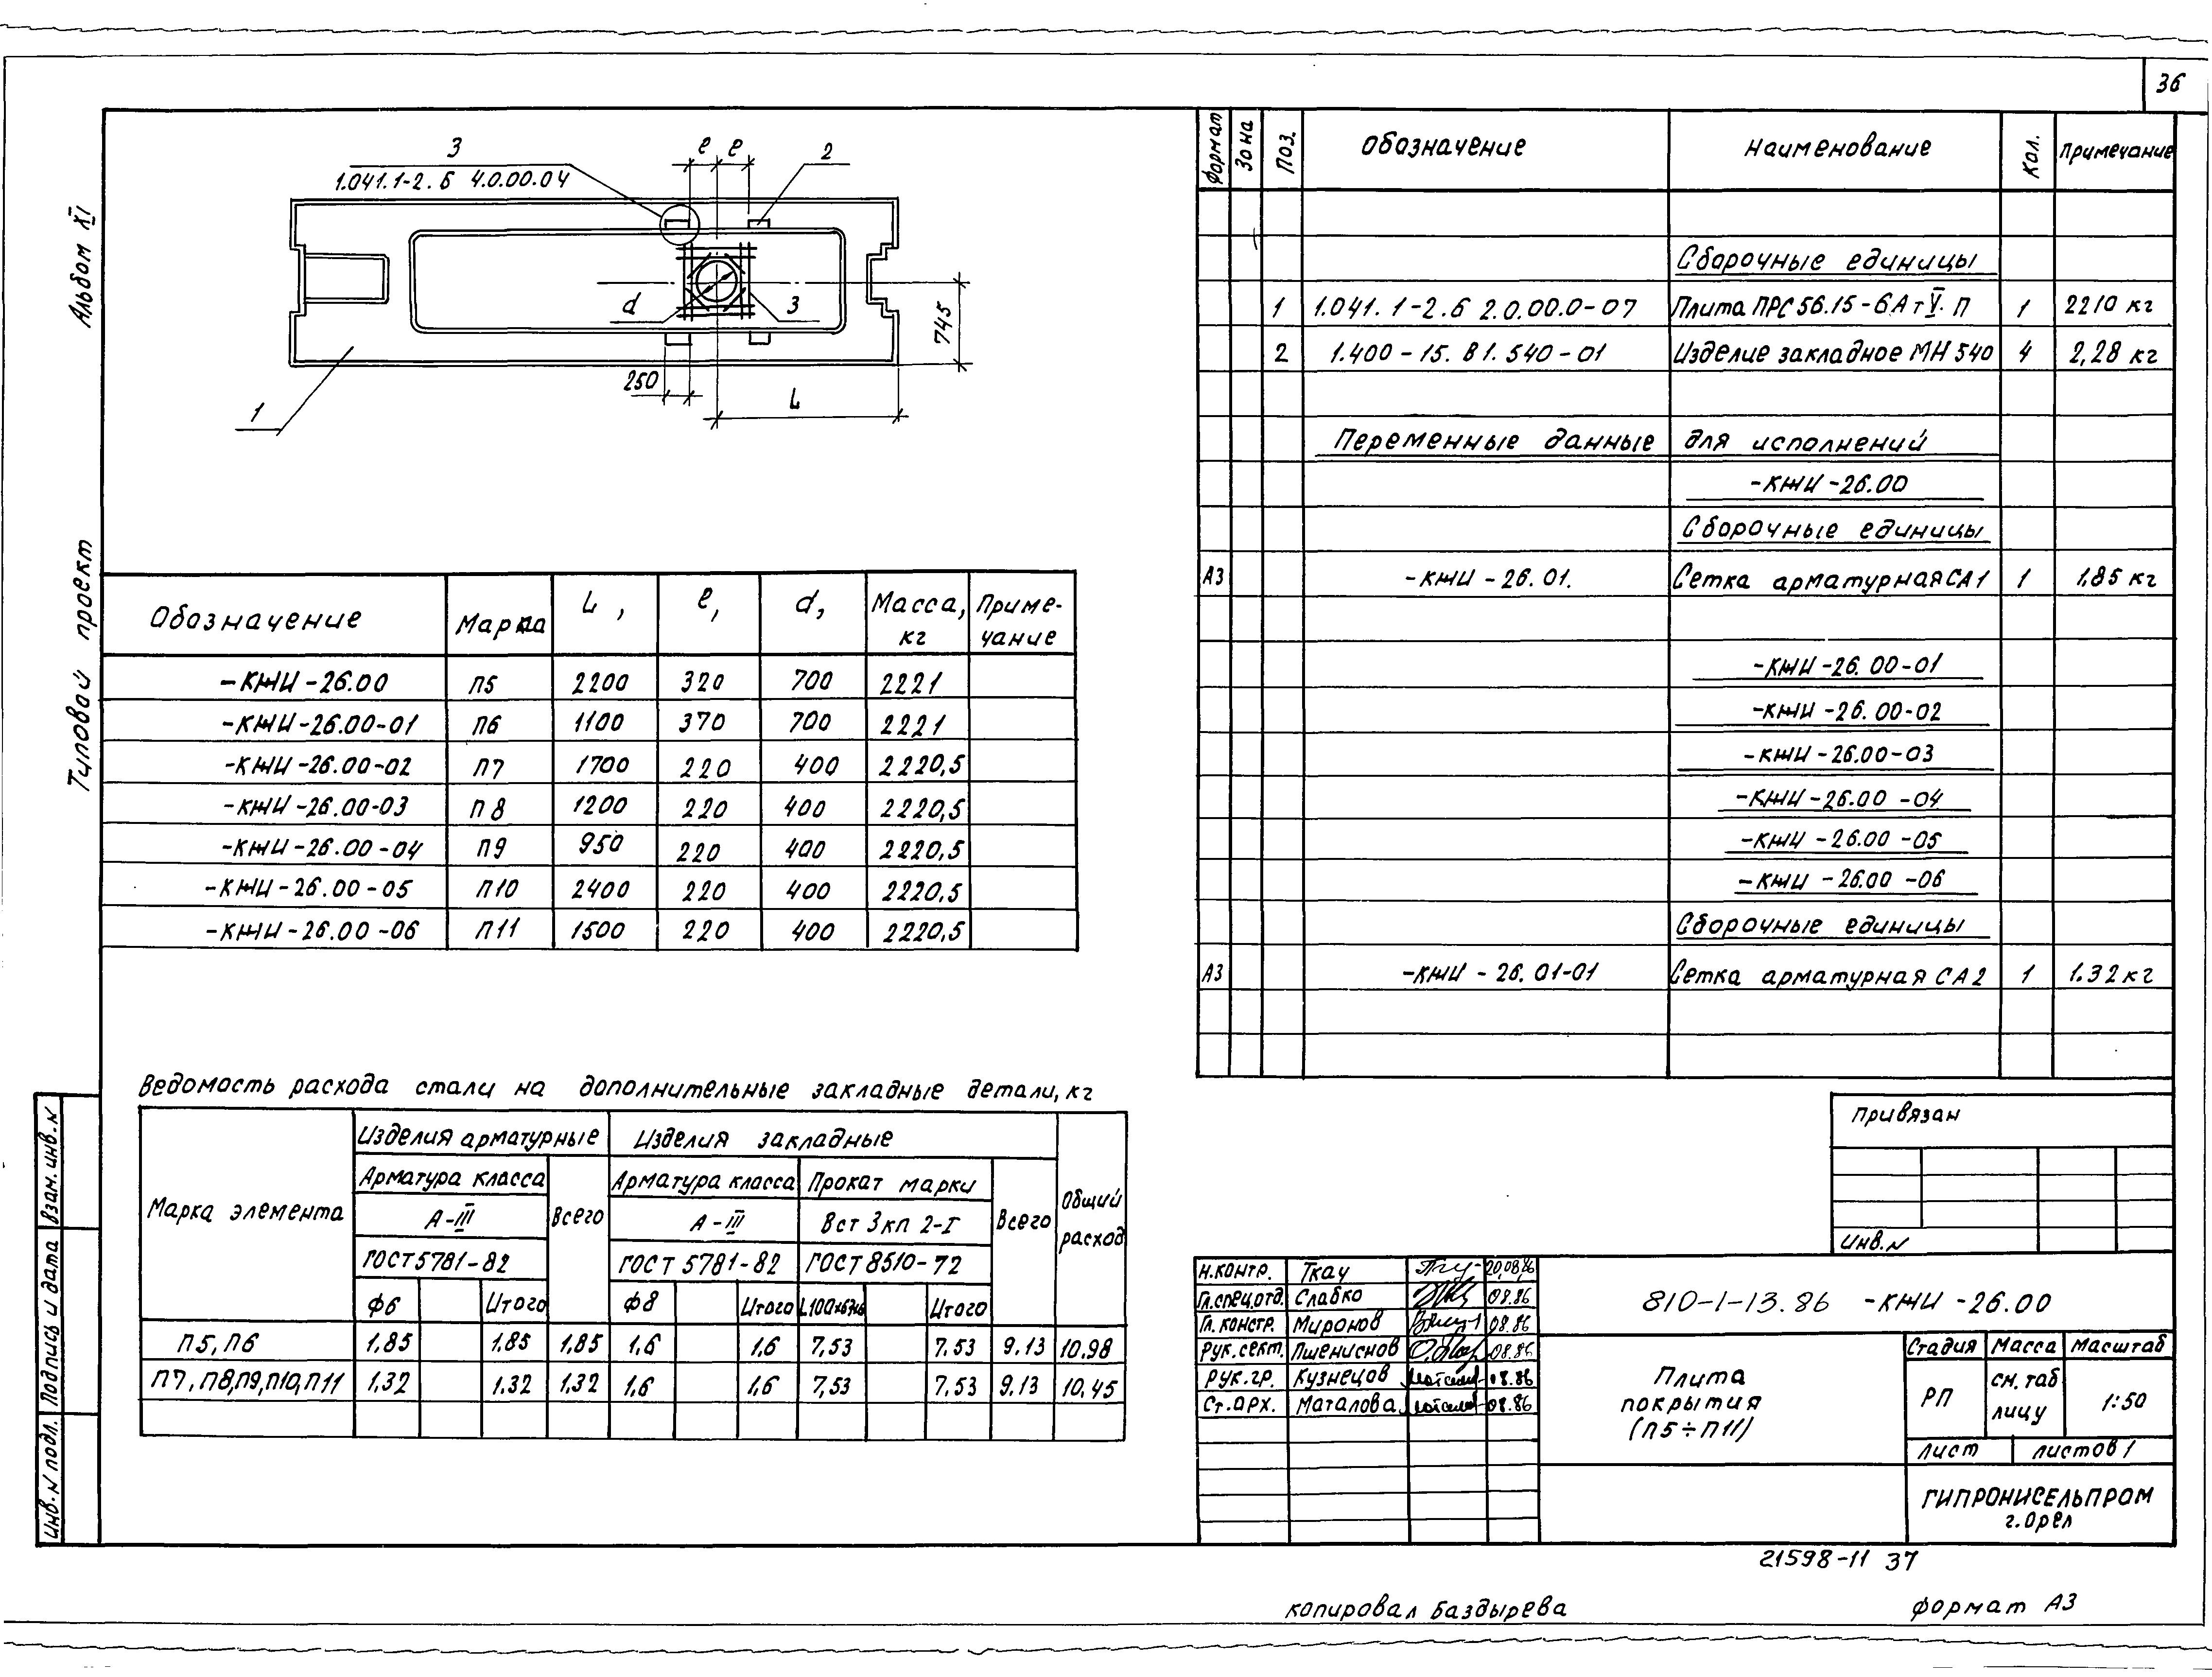 36
Альбом XI
Типовой проект
3
1.041.1-2.6 4.0.00.04
е е
2
d
3
745
250
L
1
Обозначение Марка L, е, d, Масса, кг Приме-чание
-КЖИ-26.00 П5 2200 320 700 2221
-КЖИ-26.00-01 П6 1100 370 700 2221
-КЖИ-26.00-02 П7 1700 220 400 2220,5
-КЖИ-26.00-03 П8 1200 220 400 2220,5
-КЖИ-26.00-04 П9 950 220 400 2220,5
-КЖИ-26.00-05 П10 2400 220 400 2220,5
-КЖИ-26.00-06 П11 1500 220 400 2220,5
Ведомость расхода стали на дополнительные закладные детали, кг
Марка элемента
Изделия арматурные Изделия закладные
Общий расход
Арматура класса Всего Арматура класса Прокат марки Всего
А-III А-III Вст 3кп 2-I
ГОСТ 5781-82 ГОСТ 5781-82 ГОСТ 8510-72
Ф6 Итого Ф8 Итого Итого
П5, П6 1,85 1,85 1,85 1,6 1,6 7,53 7,53 9,13 10,98
П7, П8, П9, П10, П11 1,32 1,32 1,32 1,6 1,6 7,53 7,53 9,13 10,45
Формат Зона Поз. Обозначение Наименование Кол. Примечание
Сборочные единицы
1 1.041.1-2.6 2.0.00.0-07 Плита ПРС 56.15-6АтV.П 1 2210 кг
2 1.400-15.В1.540-01 Изделие закладное МН 540 4 2,28 кг
Переменные данные для исполнений
-КЖИ-26.00
Сборочные единицы
А3 -КЖИ-26.01. Сетка арматурная СА1 1 1.85 кг
-КЖИ-26.00-01
-КЖИ-26.00-02
-КЖИ-26.00-03
-КЖИ-26.00-04
-КЖИ-26.00-05
-КЖИ-26.00-06
Сборочные единицы
А3 -КЖИ-26.01-01 Сетка арматурная СА2 1 1.32 кг
Привязан
Инв.N
Н.контр. Ткач 20,08,86
Гл.спец.отд. Слабко 08.86
Гл.констр. Миронов 08.86
Рук.сект. Пшениснов 08.86
Рук.гр. Кузнецов 08.86
Ст.арх. Маталова 08.86
810-1-13.86 -КЖИ-26.00
Плита
покрытия
(П5÷П11)
Стадия Масса Масштаб
РП см. таблицу 1:50
Лист Листов 1
ГИПРОНИСЕЛЬПРОМ
г. Орел
Взам. инв. N
Подпись и дата
Инв. N подл.
21598-11 37
копировал Баздырева
формат А3